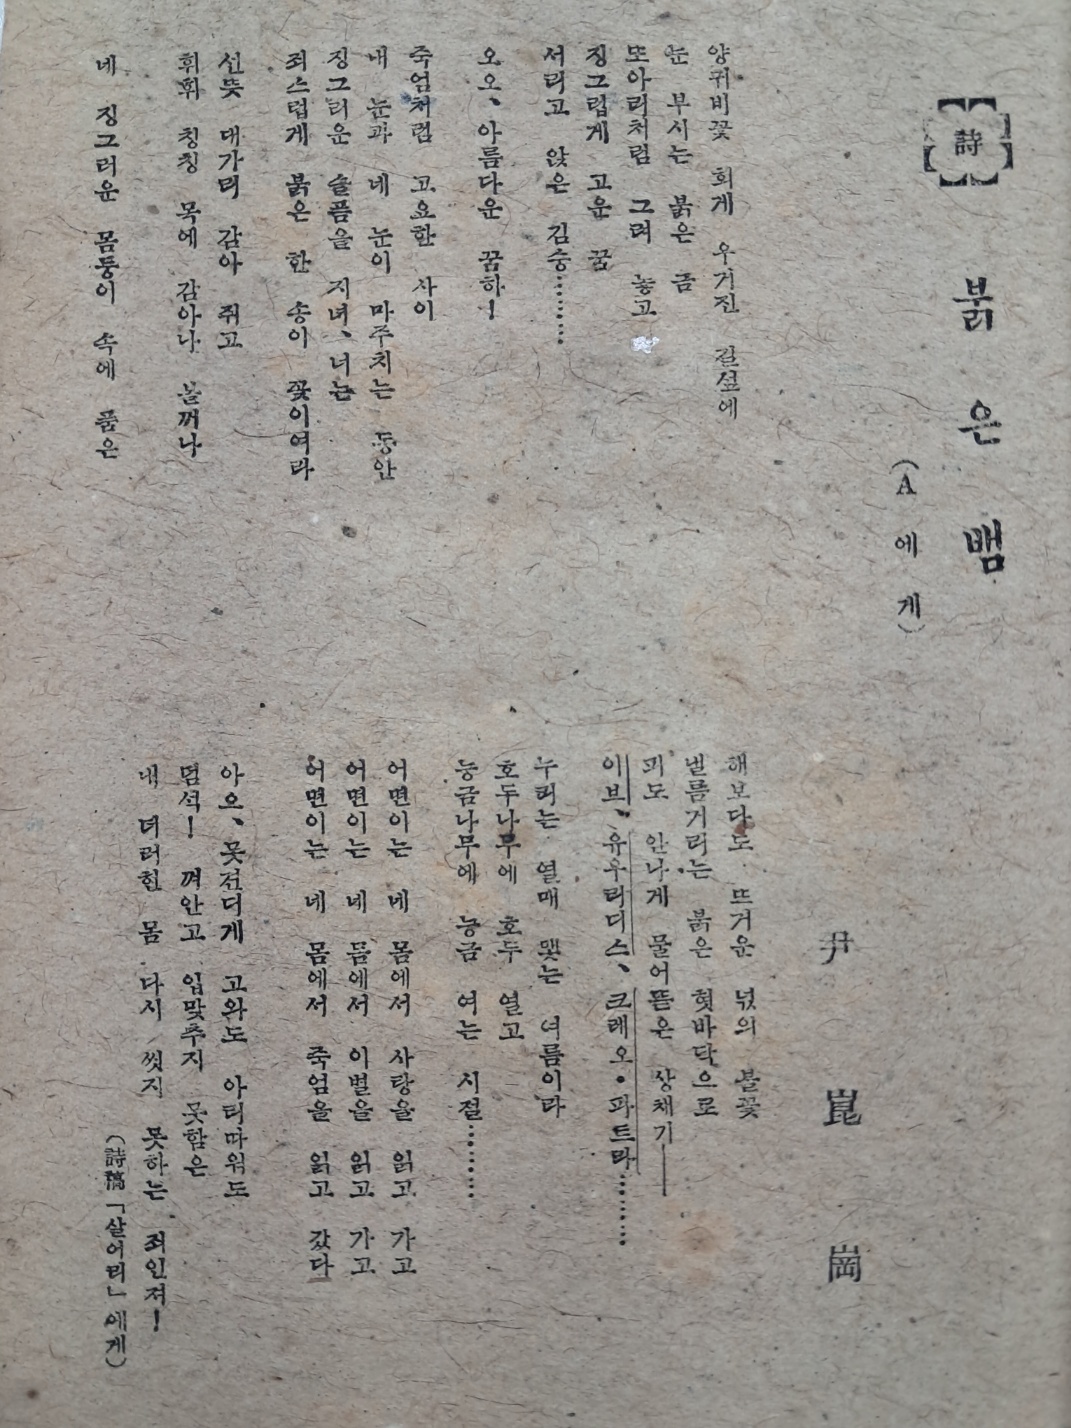 詩
붉은 뱀
(A에게)
尹崑崗
양귀비꽃 희게 우거진 길섶에
눈 부시는 붉은 금
또아리처럼 그려 놓고
징그럽게 고운 꿈
서리고 앉은 김승………
오오、아름다운 꿈하!
죽엄처럼 고요한 사이
내 눈과 네 눈이 마주치는 동안
징그러운 슬픔을 지녀、너는
죄스럽게 붉은 한 송이 꽃이여라
선뜻 대가리 감아 쥐고
휘휘 칭칭 목에 감아나 볼꺼나
네 징그러운 몸둥이 속에 품은
해보다도 뜨거운 넋의 불꽃
낼름거리는 붉은 혓바닥으로
피도 안나게 물어뜯은 상채기──
이브、유우리디스、크레오·파트라………
누리는 열매 맺는 여름이라
호두나무에 호두 열고
능금나무에 능금 여는 시절………
어떤이는 네 몸에서 사랑을 읽고 가고
어떤이는 네 몸에서 이별을 읽고 가고
어떤이는 네 몸에서 죽엄을 읽고 갔다
아으、못견디게 고와도 아리따워도
덤석! 껴안고 입맞추지 못함은
내 더러힌 몸 다시 씻지 못하는 죄인저!
(詩稿「살어리」에게)